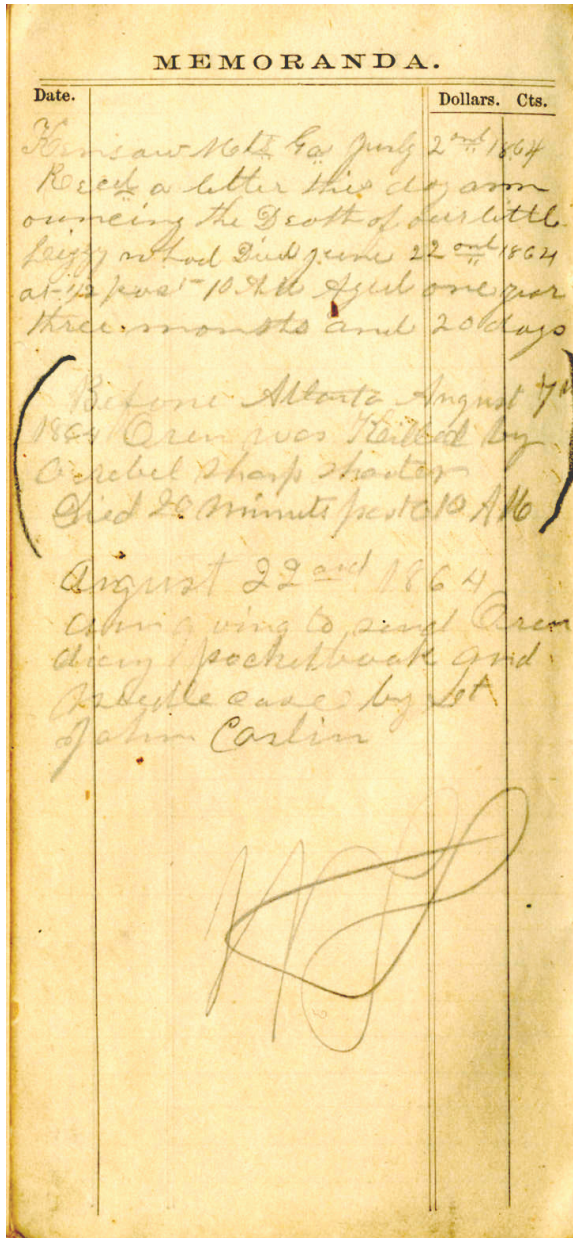 MEMORANDA.
Date. Dollars. Cts.
Kensaw Mts Ga July 2nd 1864
Recd a letter this day ann
ouncing the Death of our little
Lizzy who Died June 22ond 1864
at 1/2 past 10 AM Aged one year
three monsts and 20 days
Before Atlanta August 7th
1864 Oren was Killed by
a rebel sharp shooter
Died 20 minuts past 10 AM
August 22ond 1864
am going to send Oren
diary pocketbook and
needle case by Lt
John Carlin